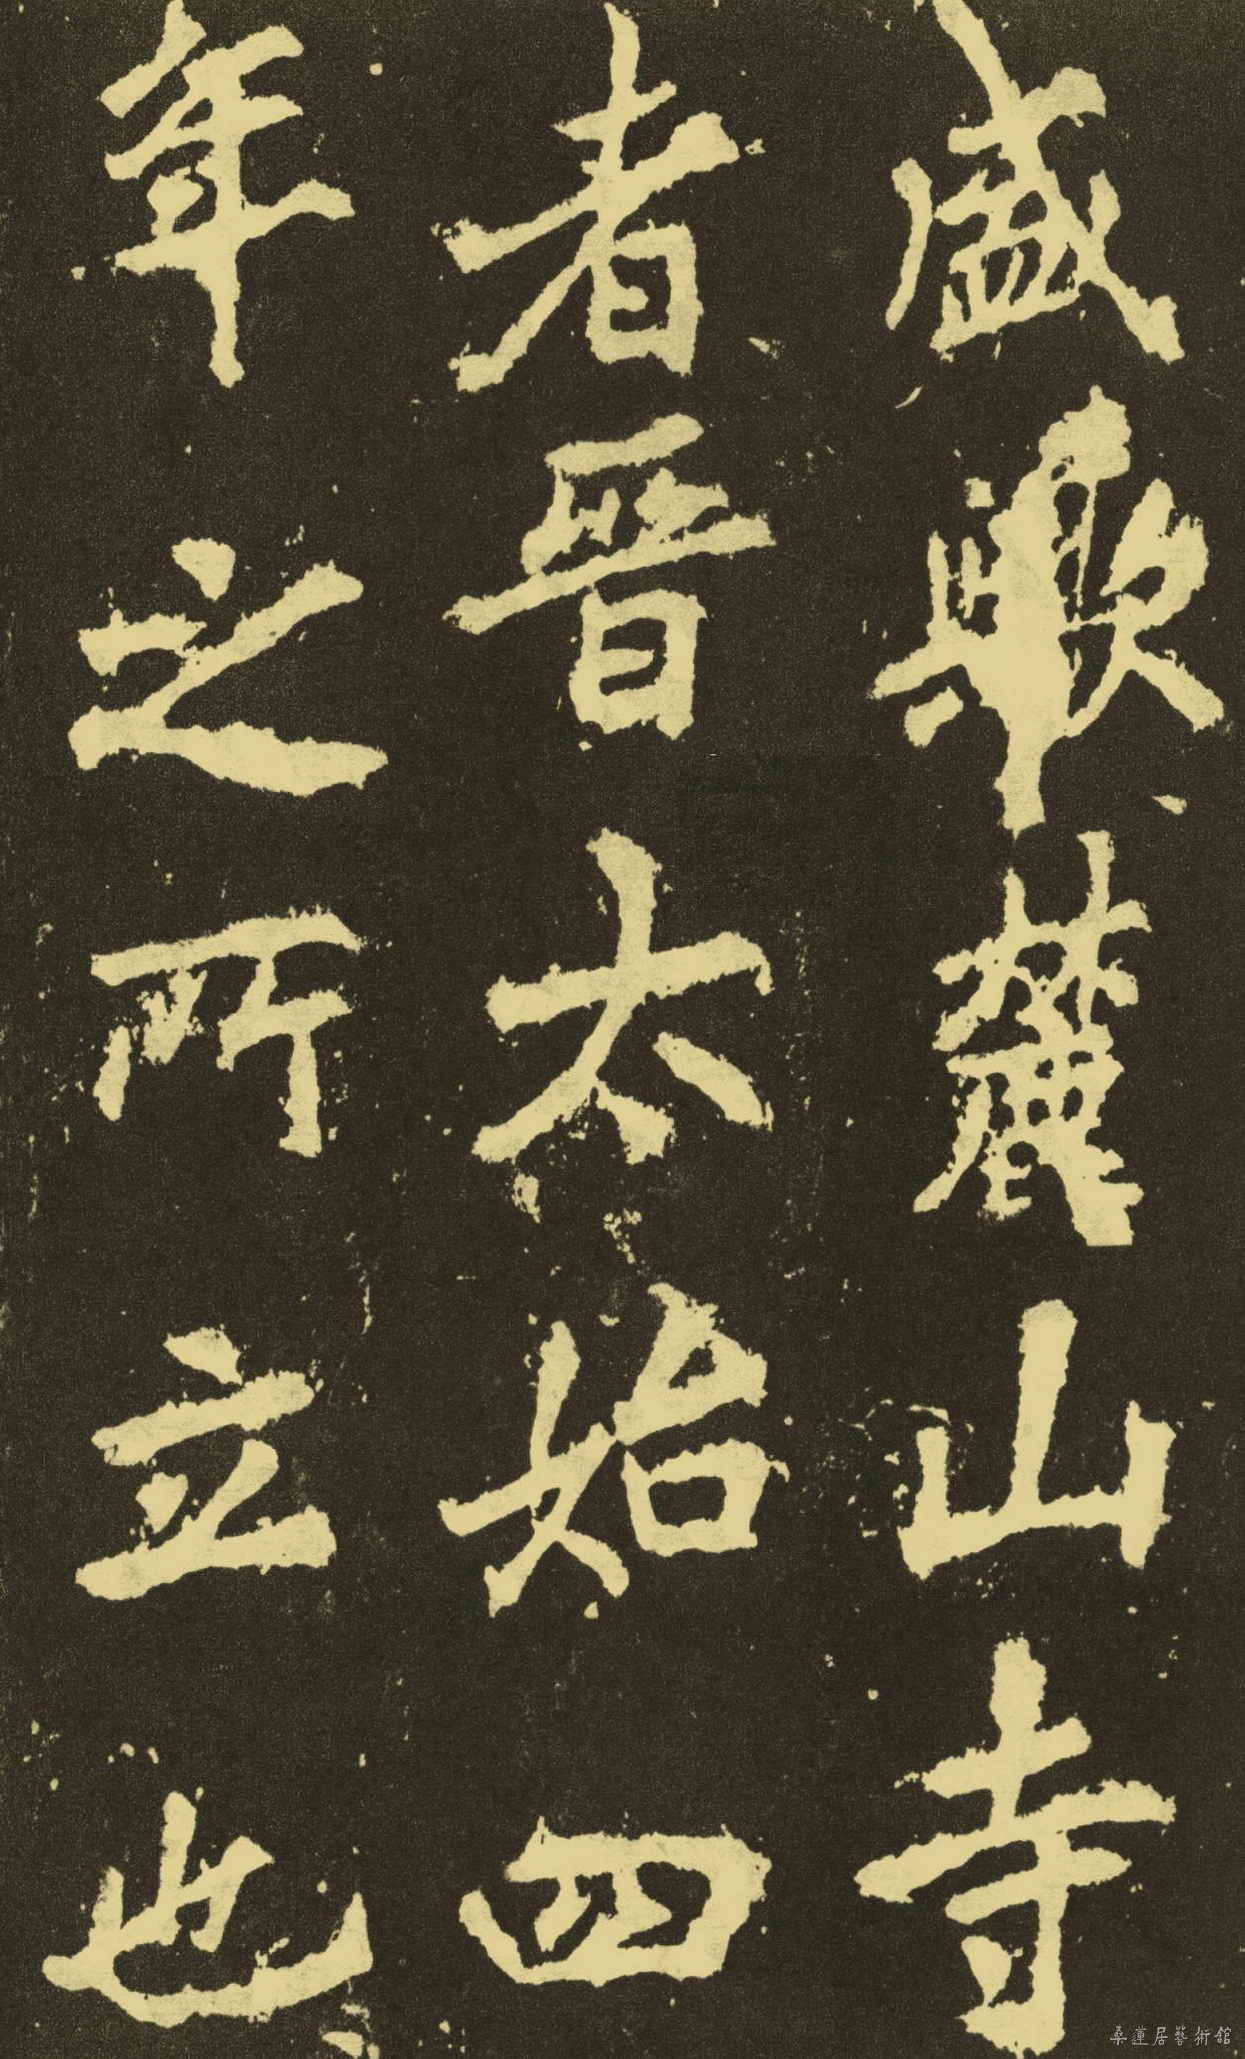 盛歟麓山寺
者晉太始四
年之所立也
桑蓮居藝術館